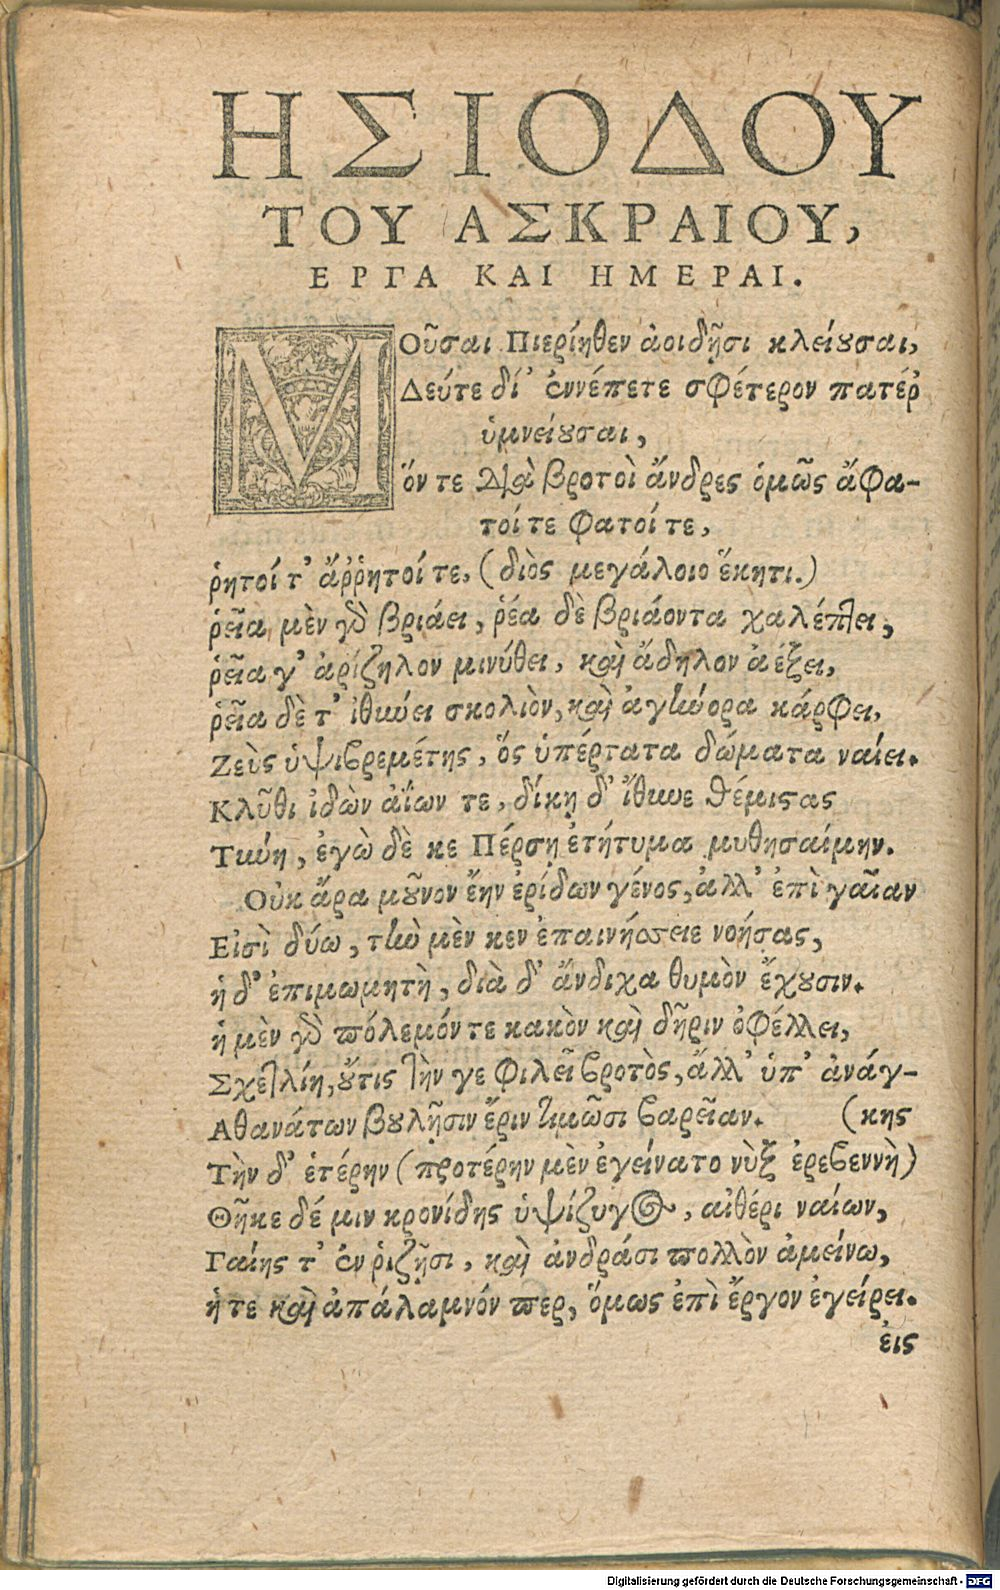 ΗΣΙΟΔΟΥ
ΤΟΥ ΑΣΚΡΑΙΟΥ,
ΕΡΓΑ ΚΑΙ ΗΜΕΡΑΙ.
ΜΟῦσαι Πιερίηθεν ἀοιδῇσι κλείȣσαι,
Δεύτε δί' ἐννέπετε σφέτερον πατέρ
ὑμνείȣσαι,
ὅν τε διὰ βροτοὶ ἄνδρες ὁμῶς ἄφα-
τοί τε φατοί τε,
ῥητοί τ' ἄῤῥητοί τε, (διὸς μεγάλοιο ἕκητι.)
ῥεῖα μὲν γὸ βριάει, ῥέα δὲ βριάοντα χαλέπτει,
ῥεῖα γ' ἀρίζηλον μινύθει, καὶ ἄδηλον ἀέξει,
ῥεῖα δὲ τ' ἰθύνει σκολιὸν, καὶ ἀγήνορα κάρφει,
Ζεὺς ὑψιβρεμέτης, ὅς ὑπέρτατα δώματα ναίει.
Κλῦθι ἰδὼν ἀΐων τε, δίκῃ δ' ἴθυνε θέμιϛας
Τύνη, ἐγὼ δὲ κε Πέρσῃ ἐτήτυμα μυθησαίμην.
Οὐκ ἄρα μȣ͂νον ἔην ἐρίδων γένος, ἀλλ' ἐπὶ γαῖαν
Εἰσὶ δύω, τὴν μὲν κεν ἐπαινήσειε νοήσας,
ἡ δ' ἐπιμωμητὴ, διὰ δ' ἄνδιχα θυμὸν ἔχȣσιν.
ἡ μὲν γὸ πόλεμόν τε κακὸν καὶ δῆριν ὀφέλλει,
Σχετλίη, ȣ̓́τις τήν γε φιλεῖ βροτὸς, ἄλλ' ὑπ' ἀνάγ-
Αθανάτων βȣλῇσιν ἔριν τιμῶσι βαρεῖαν. (κης
Τὴν δ' ἑτέρην (προτέρην μὲν ἐγείνατο νὺξ ἐρεβεννὴ)
Θῆκε δέ μιν κρονίδης ὑψίζυγος, αἰθέρι ναίων,
Γαίης τ' ἐν ῥιζῇσι, καὶ ἀνδράσι πολλὸν ἀμείνω,
ἡ τε καὶ ἀπάλαμνόν περ, ὅμως ἐπὶ ἔργον ἐγείρει.
ἐις
Digitalisierung gefördert durch die Deutsche Forschungsgemeinschaft - DFG